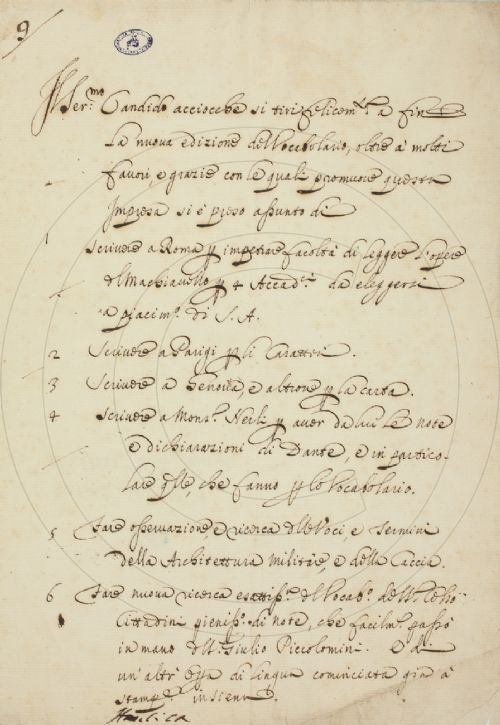 9
Il Ser.mo Candido acciocche si tiri felicem.te a fine
la nuova edizione del Vocabolario, oltre a molti
favori, e grazie con le quali promuove questa
Impresa si è preso assunto di
1 Scrivere a Roma p impetrare facoltà di leggere l'opere
del Machiavello p 4 Accad.ci da eleggersi
a piacim.to di S. A.
2 Scrivere a Parigi p li Caratteri.
3 Scrivere a Genova, e altrove p la carta.
4 Scrivere a Mons.r Nerli p aver da lui le note
e dichiarazioni di Dante, e in partico-
lare q.lle, che fanno p lo Vocabolario.
5 Fare osservazione, e ricerca delle Voci, e Termini
della Architettura militare, e della Caccia.
6 Fare nuova ricerca esattiss.a del Vocab.o dell
Cittadini pieniss.o di note, che facilm.te passò
in mano del Giulio Piccolomini. E di
un'altr' opa di lingua cominciata gia a
stamp insieme